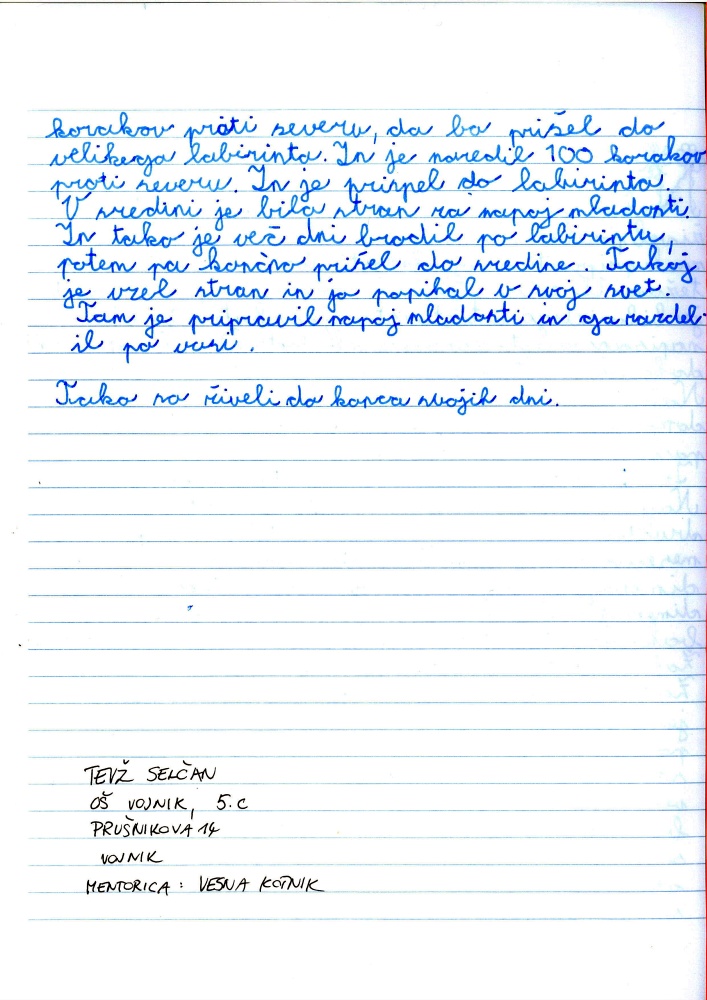 korakov proti severu, da bo prišel do
velikega labirinta. In je naredil 100 korakov
proti severu. In je prispel do labirinta.
V sredini je bila stran za napoj mladosti.
In tako je več dni brodil po labirintu,
potem pa končno prišel do sredine. Takoj
je vzel stran in jo popihal v svoj svet.
Tam je pripravil napoj mladosti in ga razdel-
il po vasi.
Tako so živeli do konca svojih dni.
TEVŽ SELČAN
OŠ VOJNIK, 5.C
PRUŠNIKOVA 14
VOJNIK
MENTORICA: VESNA KOTNIK